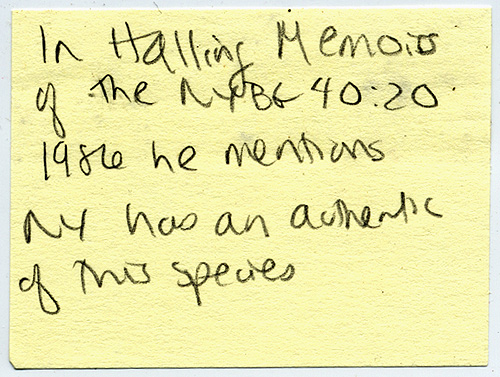 In Halling Memoirs
of the NYBG 40:20.
1986 he mentions
NY has an authentic
of this species